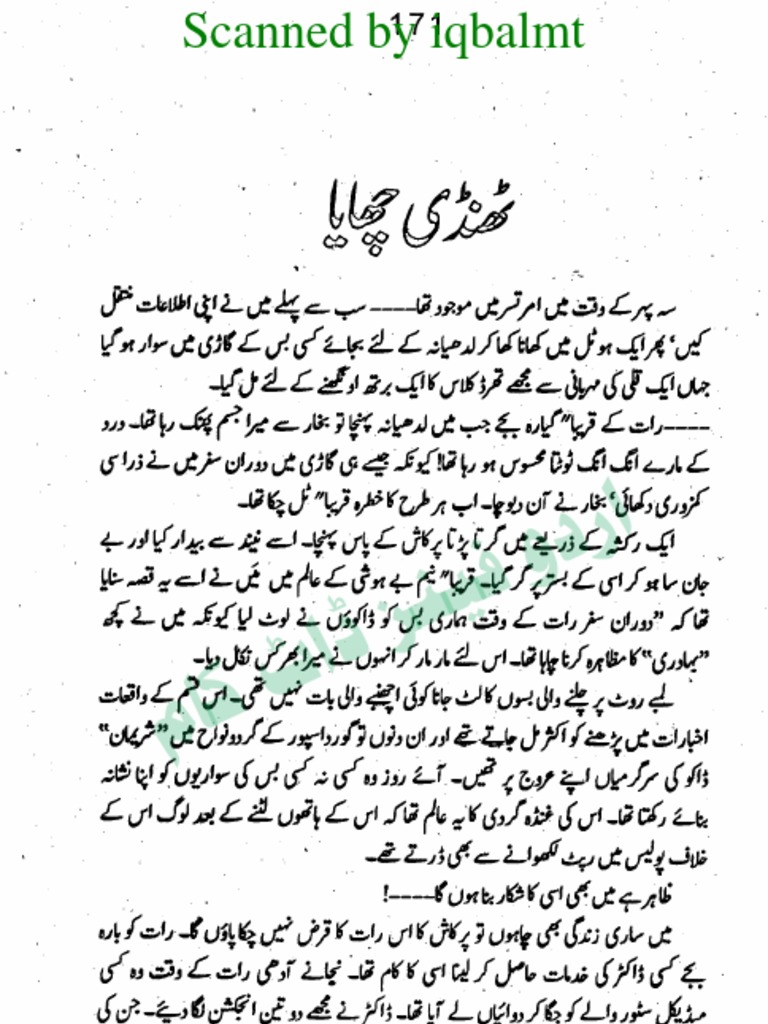 171
Scanned by iqbalmt
ٹھنڈی چھایا
سہ پہر کے وقت میں امرتسر میں موجود تھا۔۔۔۔ سب سے پہلے میں نے اپنی اطلاعات منتقل
کیں‘ پھر ایک ہوٹل میں کھانا کھا کر لدھیانہ کے لئے بجائے کسی بس کے گاڑی میں سوار ہو گیا
جہاں ایک قلی کی مہربانی سے مجھے تھرڈ کلاس کا ایک برتھ اونگھنے کے لئے مل گیا۔
۔۔۔۔رات کے قریبا" گیارہ بجے جب میں لدھیانہ پہنچا تو بخار سے میرا جسم پھنک رہا تھا۔ درد
کے مارے انگ انگ ٹوٹتا محسوس ہو رہا تھا! کیونکہ جیسے ہی گاڑی میں دوران سفر میں نے ذرا سی
کمزوری دکھائی‘ بخار نے آن دبوچا۔ اب ہر طرح کا خطرہ قریبا" ٹل چکا تھا۔
ایک رکشہ کے ذریعے میں گرتا پڑتا پرکاش کے پاس پہنچا۔ اسے نیند سے بیدار کیا اور بے
جان سا ہو کر اسی کے بستر پر گر گیا۔ قریبا" نیم بے ہوشی کے عالم میں مَیں نے اسے یہ قصہ سنایا
تھا کہ "دوران سفر رات کے وقت ہماری بس کو ڈاکوؤں نے لوٹ لیا کیونکہ میں نے کچھ
"بہادری" کا مظاہرہ کرنا چاہا تھا۔ اس لئے مار مار کر انہوں نے میرا بھرکس نکال دیا۔
لمبے روٹ پر چلنے والی بسوں کا لٹ جانا کوئی اچھنبے والی بات نہیں تھی۔ اس قسم کے واقعات
اخبارات میں پڑھنے کو اکثر مل جاتے تھے اور ان دنوں تو گورداسپور کے گردونواح میں "شریمان"
ڈاکو کی سرگرمیاں اپنے عروج پر تھیں۔ آئے روز وہ کسی نہ کسی بس کی سواریوں کو اپنا نشانہ
بنائے رکھتا تھا۔ اس کی غنڈہ گردی کا یہ عالم تھا کہ اس کے ہاتھوں لٹنے کے بعد لوگ اس کے
خلاف پولیس میں رپٹ لکھوانے سے بھی ڈرتے تھے۔
ظاہر ہے میں بھی اسی کا شکار بنا ہوں گا۔۔۔۔!
میں ساری زندگی بھی چاہوں تو پرکاش کا اس رات کا قرض نہیں چکا پاؤں گا۔ رات کو بارہ
بجے کسی ڈاکٹر کی خدمات حاصل کر لینا اسی کا کام تھا۔ نجانے آدھی رات کے وقت وہ کسی
میڈیکل سٹور والے کو جگا کر دوائیاں لے آیا تھا۔ ڈاکٹر نے مجھے دو تین انجکشن لگا دیئے۔ جن کی
اردو فینز ڈاٹ کام